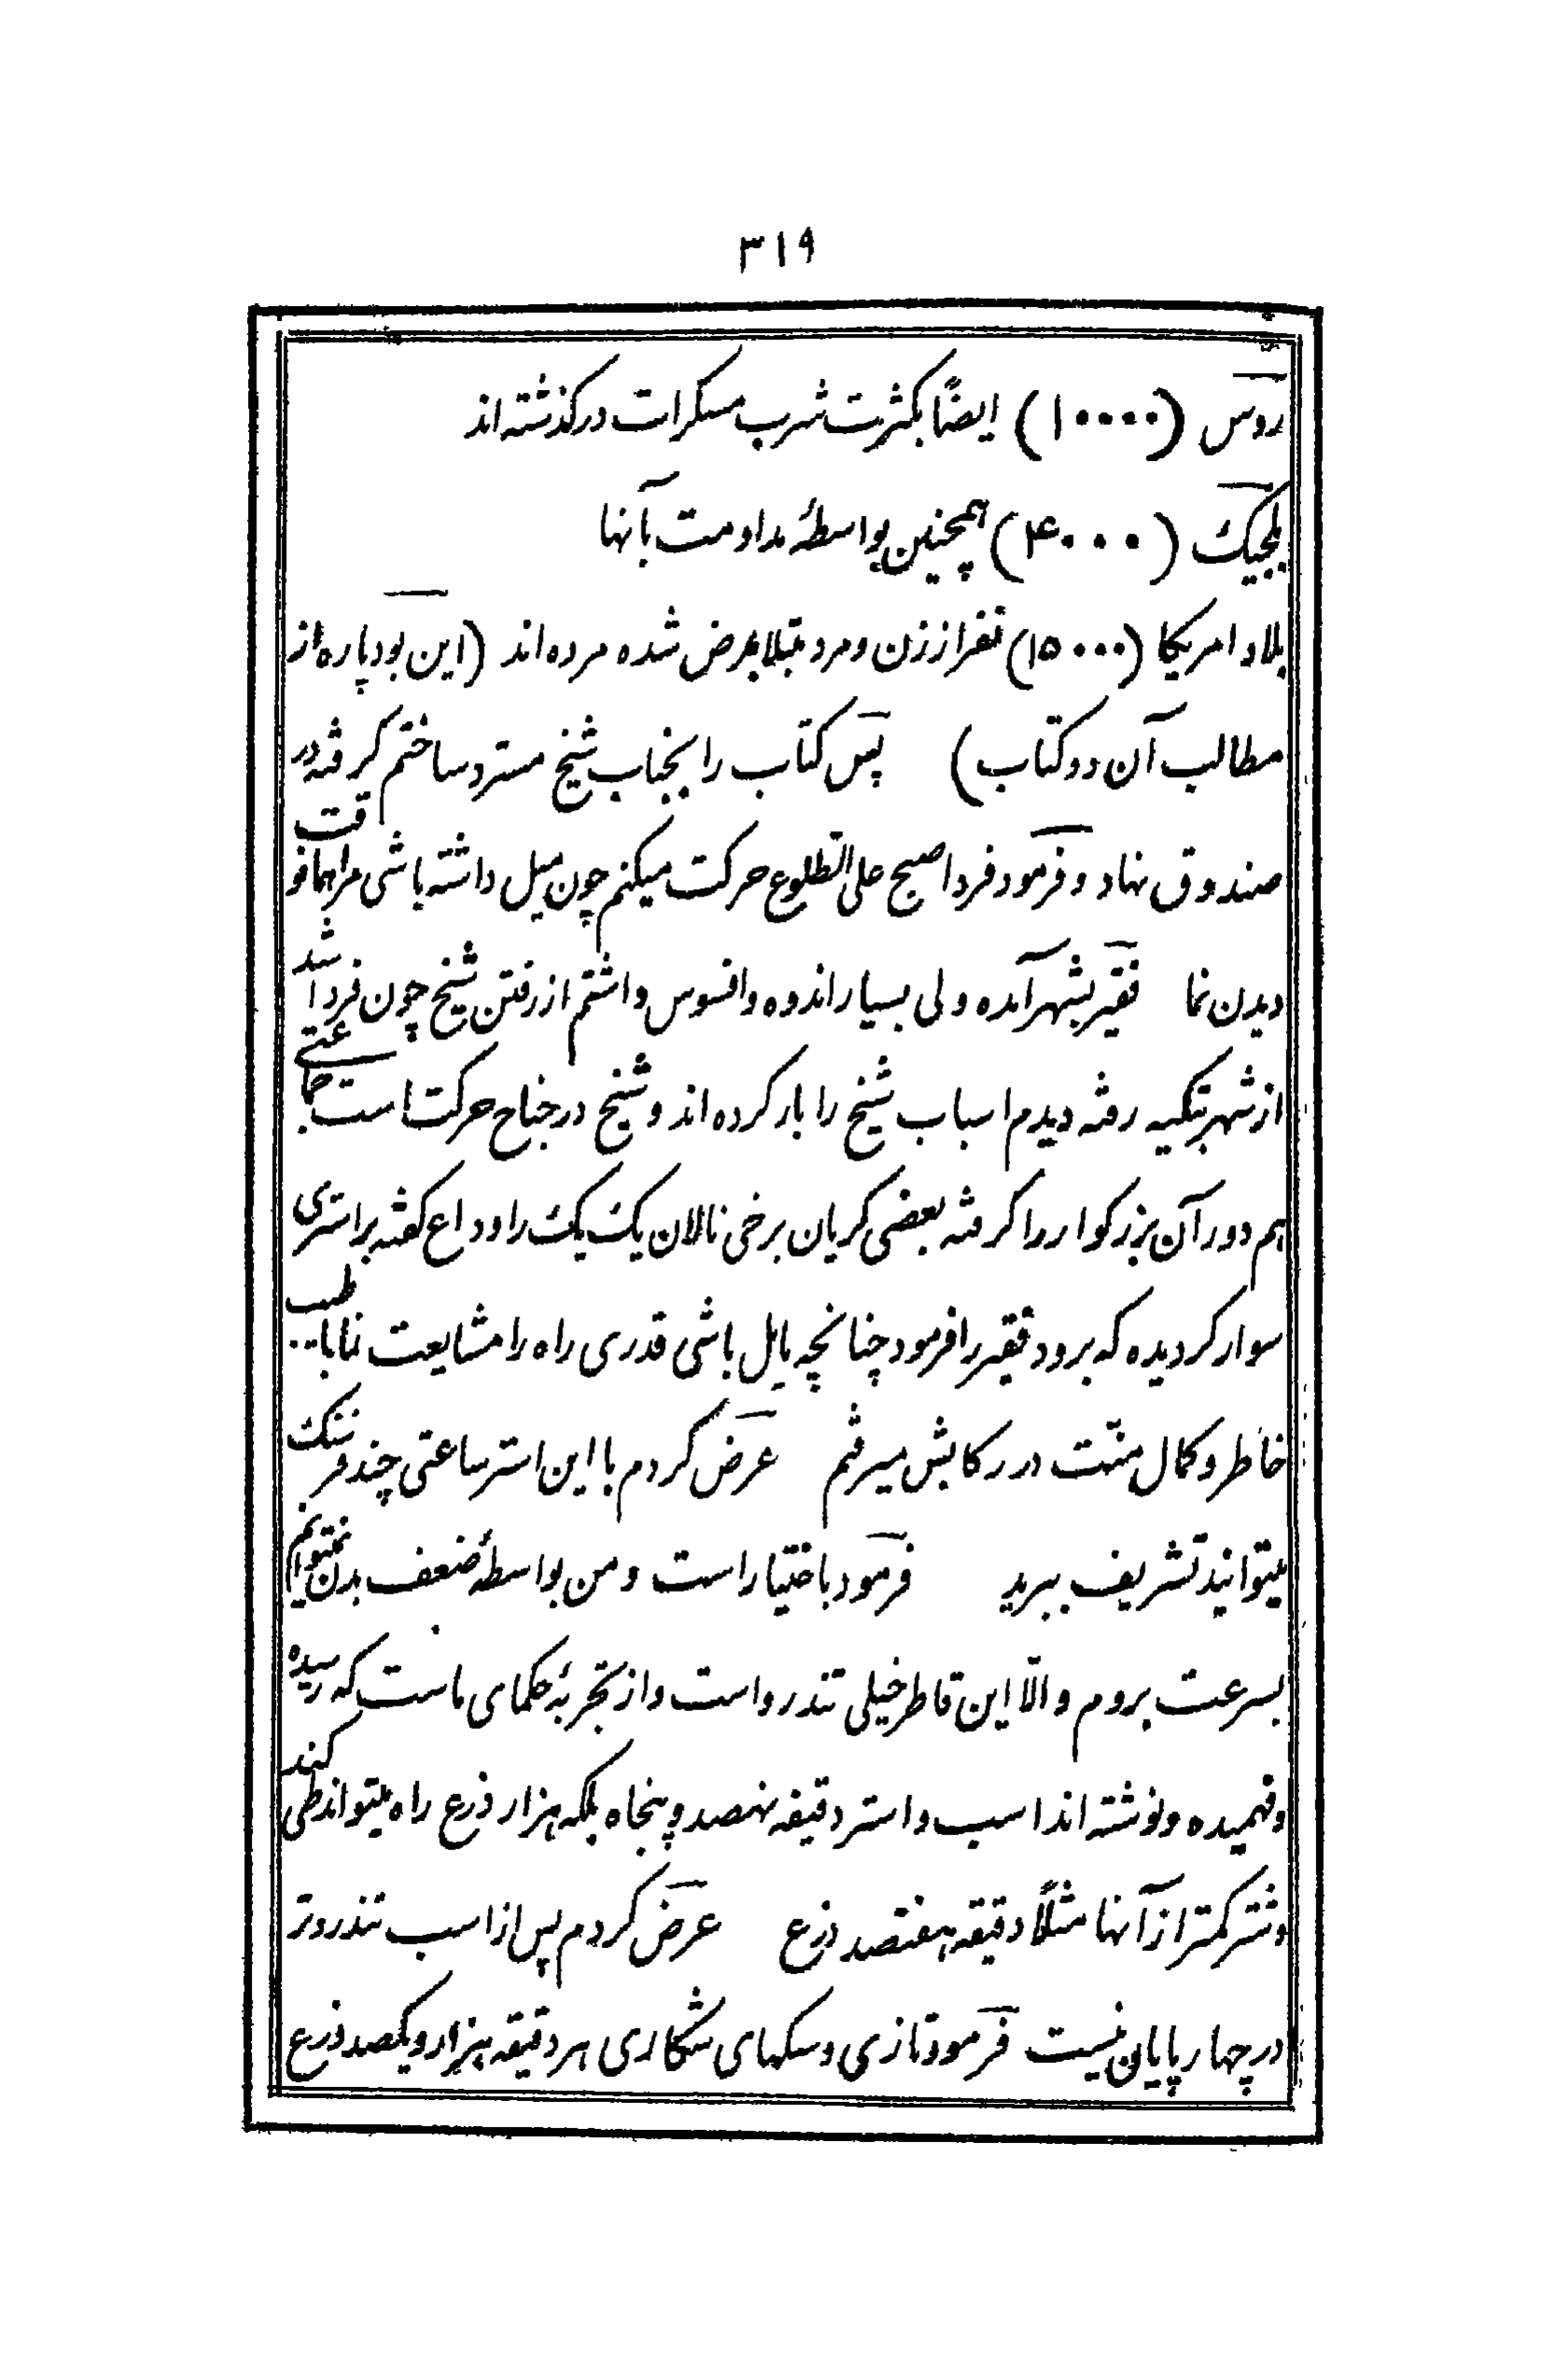 ۳۱۹
روس (۱۰۰۰۰) ایضاً بکثرت شرب مسکرات درکذشته‌اند
بلجیک (۴۰۰۰) همچنین بواسطهٔ مداومت بآنها
بلاد امریکا (۱۵۰۰۰) نفر از زن و مرد مبتلا بمرض شده مرده‌اند (این بود پاره از
مطالب آن دو کتاب) پس کتاب را بجناب شیخ مسترد ساختم کرفته در
صندوق نهاد و فرمود فردا صبح علی الطلوع حرکت میکنم چون میل داشته باشی مرا همافوقت
دیدن نما فقیر بشهر آمده ولی بسیار اندوه و افسوس داشتم از رفتن شیخ چون فردا شد
از شهر بتکیه رفته دیدم اسباب شیخ را بار کرده‌اند و شیخ در جناح حرکت است جماعتی
هم دور آن بزرکوار را کرفته بعضی کریان برخی نالان یک یک را وداع کفته بر استری
سوار کردیده که برود فقیر را فرمود چنانچه مایل باشی قدری راه را مشایعت نما با طیب
خاطر و کمال منّت در رکابش میرفتم عرض کردم با این استر ساعتی چند فرسنک
میتوانید تشریف ببرید فرمود باختیار است و من بواسطهٔ ضعف بدن نمیتوانم
بسرعت بروم و الّا این قاطر خیلی تندرو است و از تجربهٔ حکمای ماست که رسیده
و فهمیده و نوشته‌اند اسب و استر دقیقه نهصد و پنجاه بلکه هزار ذرع راه میتواند طی کند
و شتر کمتر از آنها مثلاً دقیقه هفتصد ذرع عرض کردم پس از اسب تندروتر
در چهار پایان نیست فرمود تازی و سکهای شکاری هر دقیقه هزار و یکصد ذرع